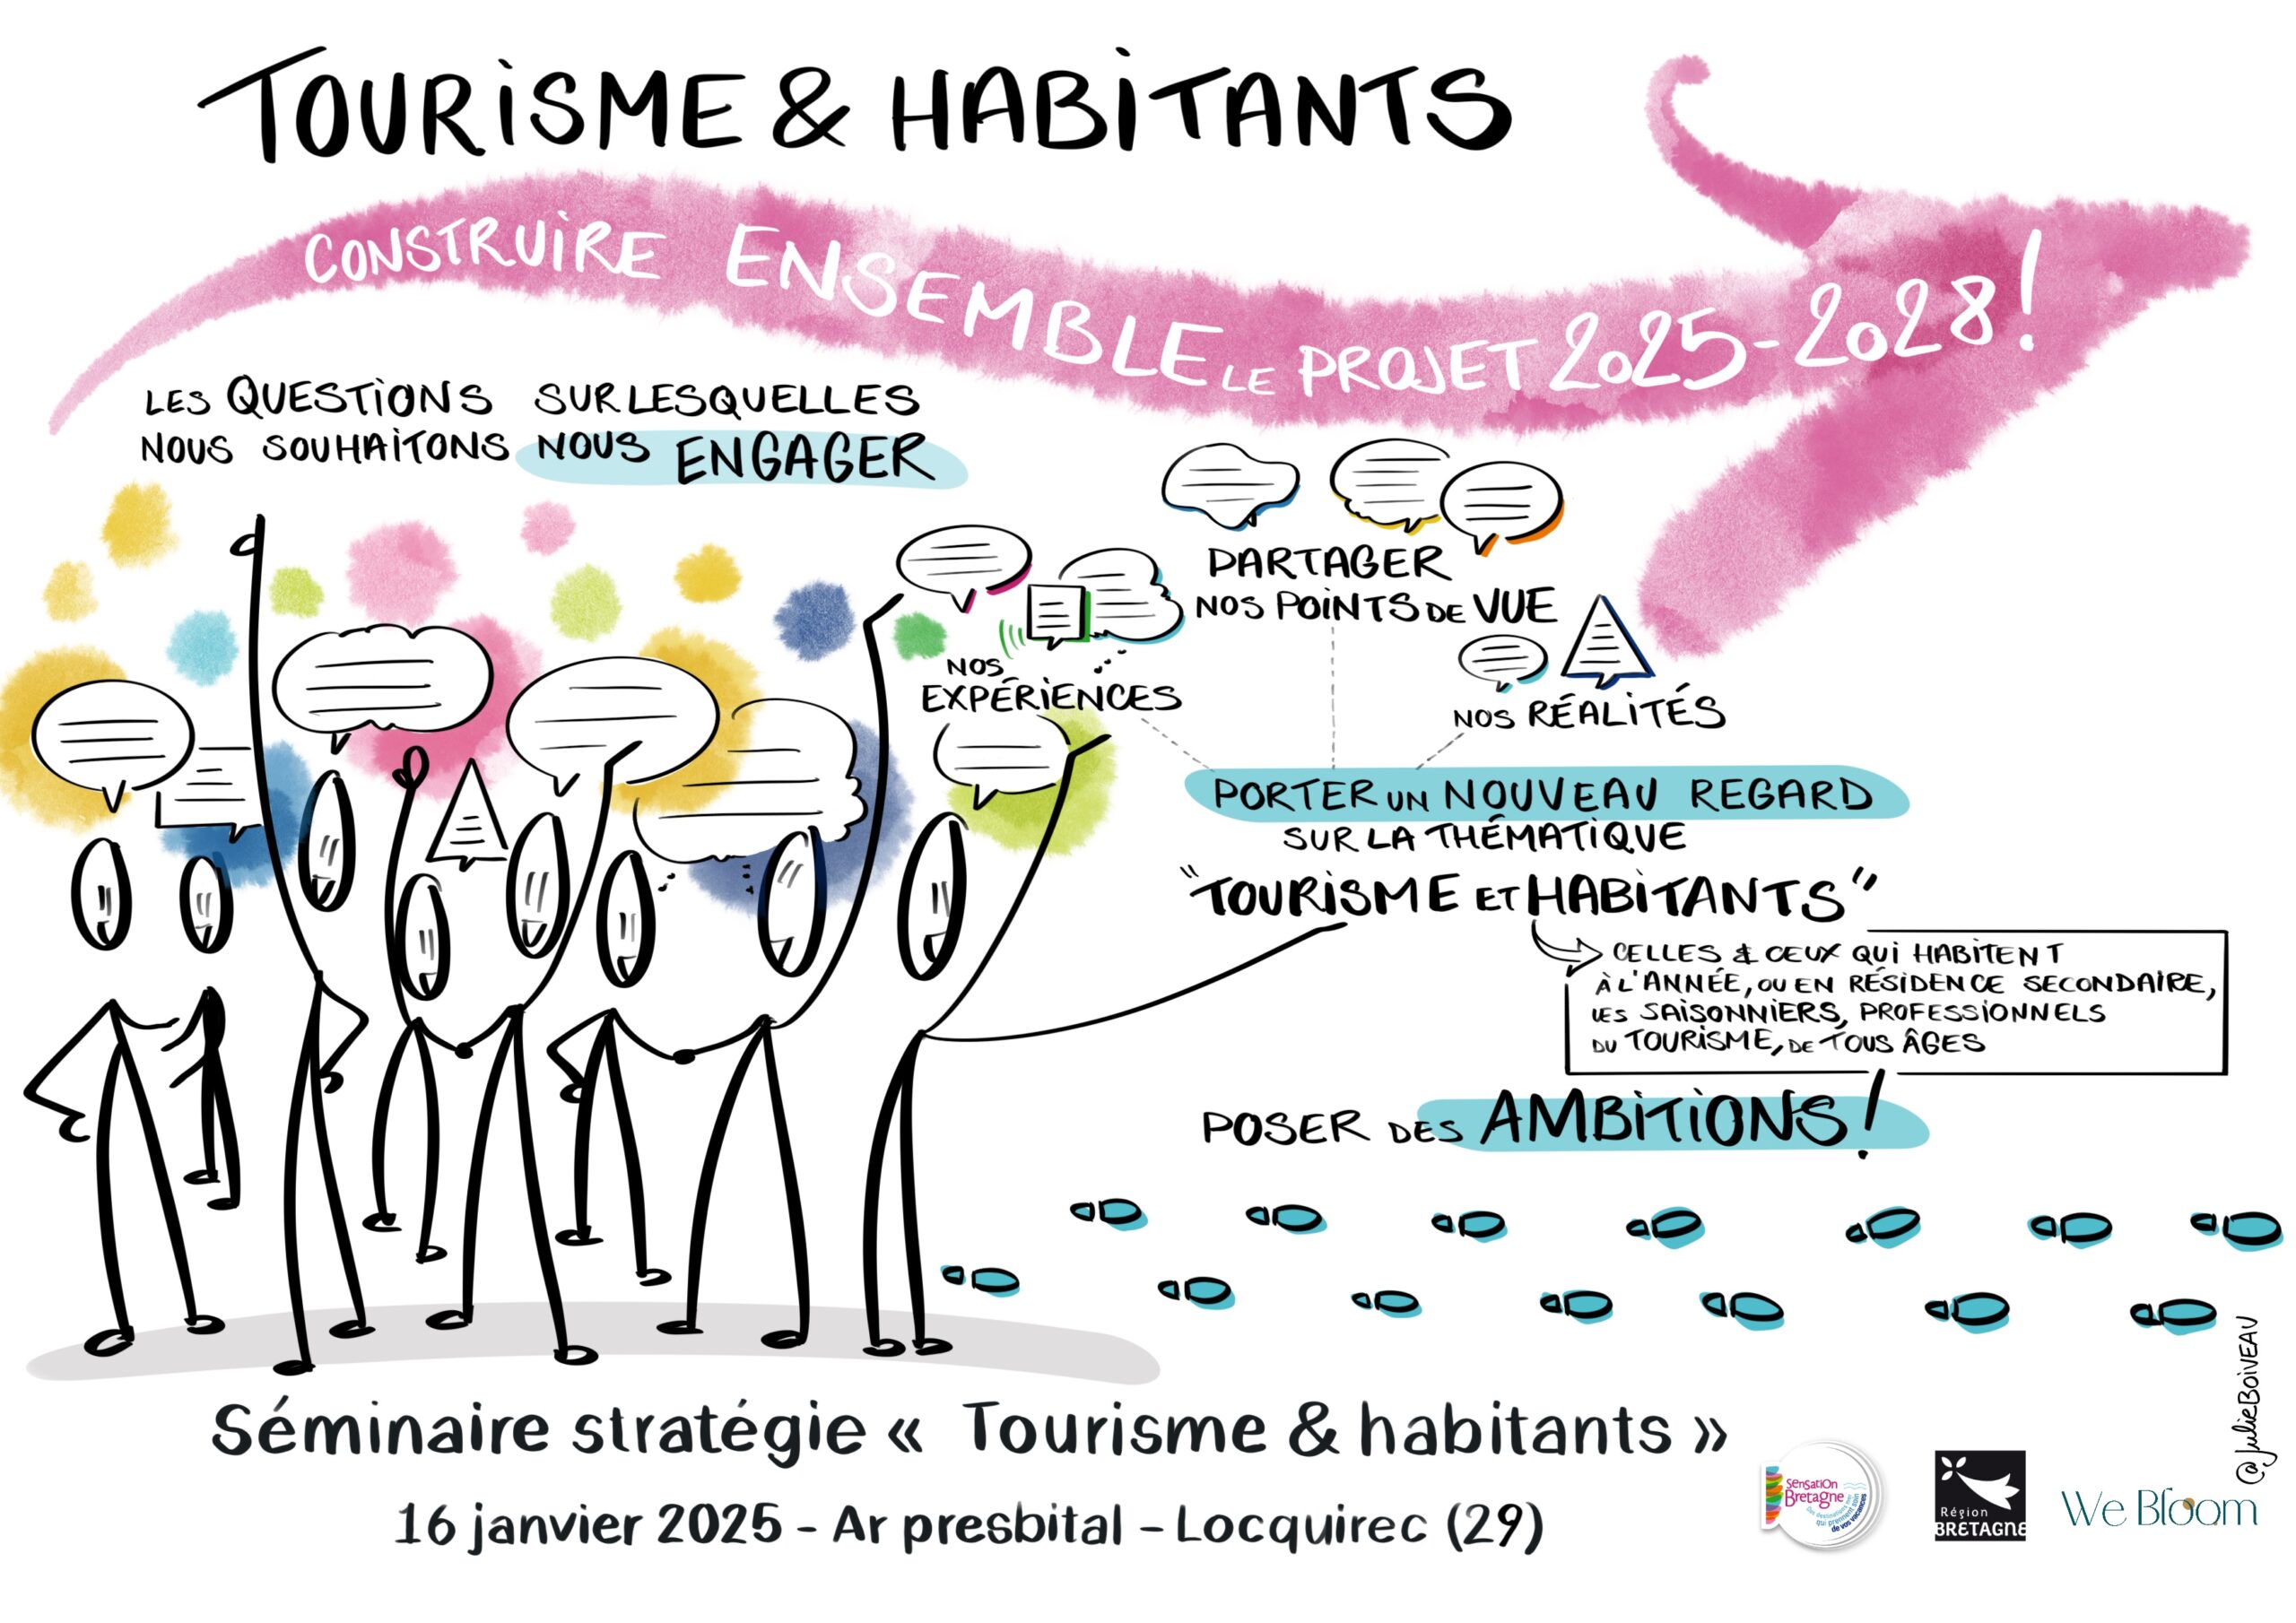 TOURISME & HABITANTS
CONSTRUIRE ENSEMBLE LE PROJET 2025-2028!
LES QUESTIONS SUR LESQUELLES
NOUS SOUHAITONS NOUS ENGAGER
PARTAGER
NOS POINTS DE VUE
NOS
EXPÉRIENCES
NOS RÉALITÉS
PORTER UN NOUVEAU REGARD
SUR LA THÉMATIQUE
"TOURISME ET HABITANTS"
CELLES & CEUX QUI HABITENT
À L'ANNÉE, OU EN RÉSIDENCE SECONDAIRE,
LES SAISONNIERS, PROFESSIONNELS
DU TOURISME, DE TOUS ÂGES
POSER DES AMBITIONS!
@JulieBOiVEAU
Séminaire stratégie « Tourisme & habitants »
16 janvier 2025 - Ar presbital - Locquirec (29)
Sensation
Bretagne
Des destinations
qui prennent soin
de vos vacances
Région
BRETAGNE
We Bloom